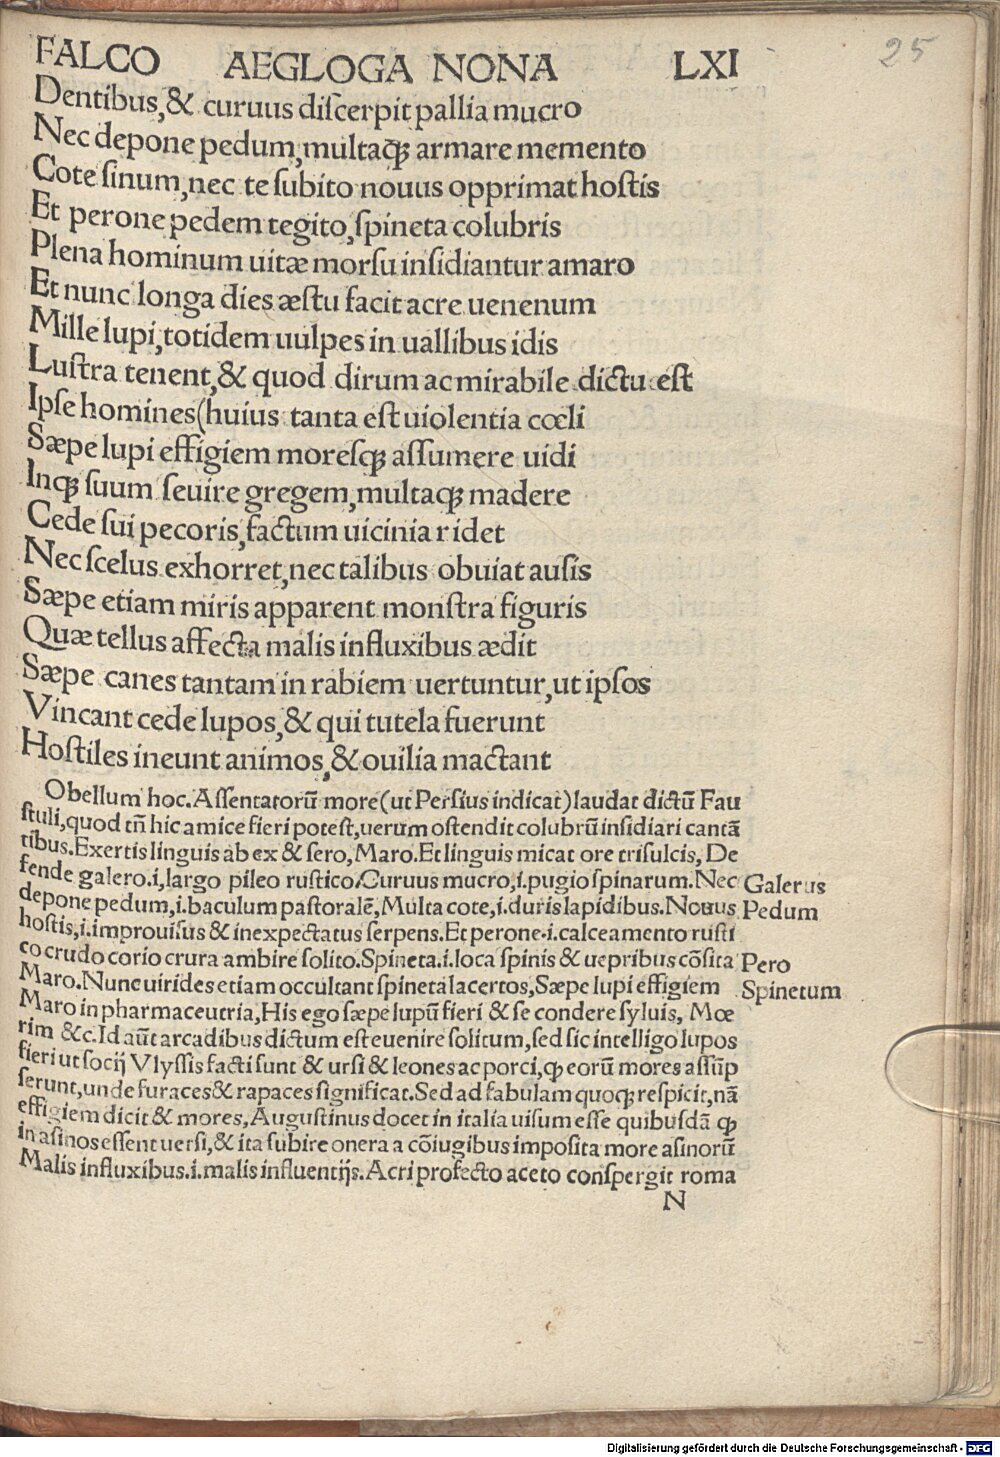 FALCO AEGLOGA NONA LXI
25
Dentibus,& curuus diſcerpit pallia mucro
Nec depone pedum,multaqꝫ armare memento
Cote ſinum,nec te ſubito nouus opprimat hoſtis
Et perone pedem tegito,ſpineta colubris
Plena hominum uitæ morſu inſidiantur amaro
Et nunc longa dies æſtu facit acre uenenum
Mille lupi,totidem uulpes in uallibus idis
Luſtra tenent,& quod dirum ac mirabile dictu eſt
Ipſe homines(huius tanta eſt uiolentia cœli
Sæpe lupi effigiem moreſqꝫ aſſumere uidi
Inqꝫ ſuum ſeuire gregem,multaqꝫ madere
Cede ſui pecoris,factum uicinia ridet
Nec ſcelus exhorret,nec talibus obuiat auſis
Sæpe etiam miris apparent monſtra figuris
Quæ tellus affecta malis influxibus ædit
Sæpe canes tantam in rabiem uertuntur,ut ipſos
Vincant cede lupos,& qui tutela fuerunt
Hoſtiles ineunt animos,& ouilia mactant
Obellum hoc.Aſſentatorū more(ut Perſius indicat)laudat dictū Fau
ſtuli,quod tñ hic amice fieri poteſt,uerum oſtendit colubrū inſidiari cantā
tibus.Exertis linguis ab ex & ſero,Maro.Et linguis micat ore triſulcis, De
fende galero.i,largo pileo ruſtico.Curuus mucro,i.pugio ſpinarum.Nec Galerus
depone pedum,i.baculum paſtoralē,Multa cote,i.duris lapidibus.Nouus Pedum
hoſtis,i.improuiſus & inexpectatus ſerpens.Et perone.i.calceamento ruſti
co crudo corio crura ambire ſolito.Spineta.i.loca ſpinis & uepribus cōſita Pero
Maro.Nunc uirides etiam occultant ſpineta lacertos,Sæpe lupi effigiem Spinetum
Maro in pharmaceutria,His ego ſæpe lupū fieri & ſe condere ſyluis, Mœ
rim &c.Id aūt arcadibus dictum eſt euenire ſolitum,ſed ſic intelligo lupos
fieri ut ſocij Vlyſſis facti ſunt & urſi & leones ac porci,ꝙ eorū mores aſſūp
ſerunt,unde furaces & rapaces ſignificat.Sed ad fabulam quoqꝫ reſpicit,nā
effigiem dicit & mores,Auguſtinus docet in italia uiſum eſſe quibuſdā ꝙ
in aſinos eſſent uerſi,& ita ſubire onera a cōiugibus impoſita more aſinorū
Malis influxibus.i.malis influentijs.Acri profecto aceto conſpergit roma
N
Digitalisierung gefördert durch die Deutsche Forschungsgemeinschaft - DFG